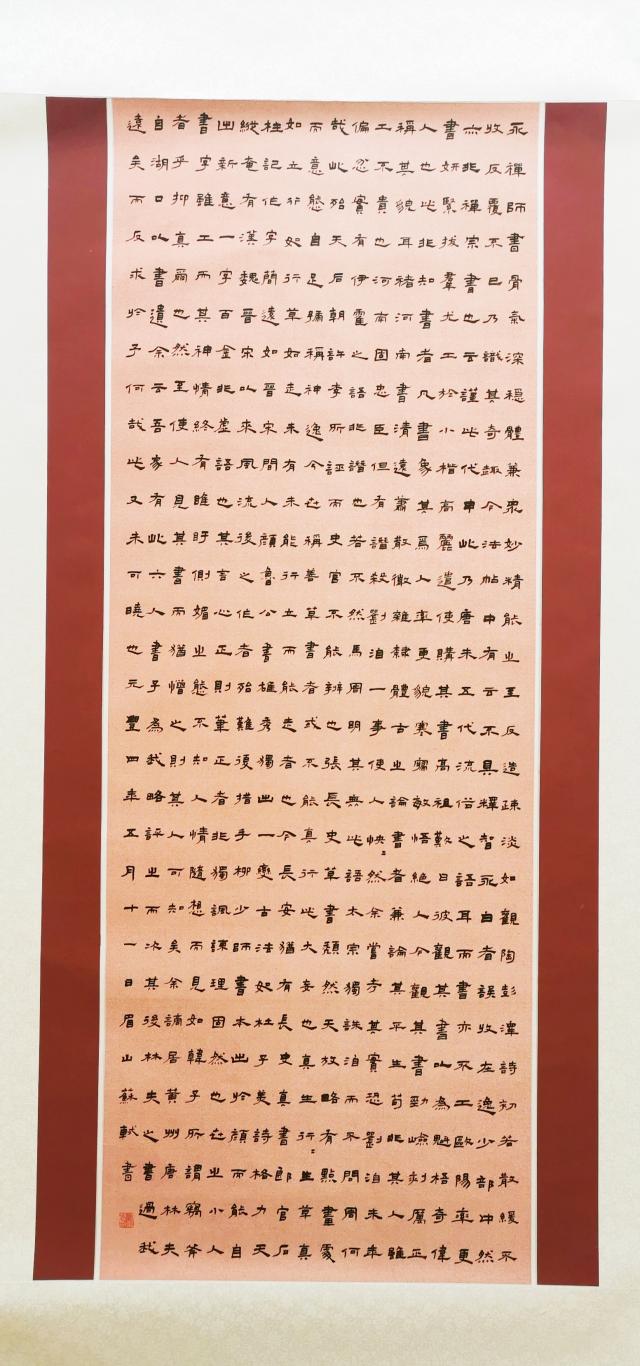 永禪師書骨氣深穩體兼衆妙精能之至反造疎淡如觀陶彭澤詩初若散緩不
收反覆不已乃識其奇趣今法帖中有云不具釋智永白者誤收在逸少部中然
亦非禪宗書也云謹此代申此乃唐末五代流俗之語耳而書亦不工歐陽率更
書妍緊拔羣尤工於小楷高麗遣使購其書高祖歎曰彼觀其書以為魁梧奇偉
人也此非知書者凡書象其爲人率更貌寒寢敏悟絕人今觀其書勁嶮刻厲正
稱其貌耳褚河南書清遠蕭散微雜隸體古之論書者兼論其平生苟非其人雖
工不貴也河南固忠臣但有譖殺劉洎一事使人怏〻然余嘗考其實恐劉洎末年
偏忿實有伊霍之語非譖也若不然馬周明其無此語太宗獨誅洎而不問周何
哉此殆天后朝許李所誣而史官不能辨也張長史草書頹然天放略有點畫處
而意態自足號稱神逸今世稱善草書者或不能真行此大妄也真生行〻生草真
如立行如行草如走未有未能行立而能走者也今長安猶有長史真書郎官石
柱記作字簡遠如晉宋間人顏魯公書雄秀獨出一變古法如杜子美詩格力天
縱奄有漢魏晉宋以來風流後之作者殆難復措手柳少師書本出於顏而能自
出新意一字百金非虛語也其言心正則筆正者非獨諷諫理固然也世之小人
書字雖工而其神情終有睢盱側媚之態不知人情隨想而見如韓子所謂竊斧
者乎抑真爾也然至使人見其書而猶憎之則其人可知矣余謫居黃州唐林夫
自湖口以書遺余云吾家有此六人書子為我略評之而次其後林夫之書過我
遠矣而反求於子何哉此又未可曉也元豐四年五月十一日眉山蘇軾書